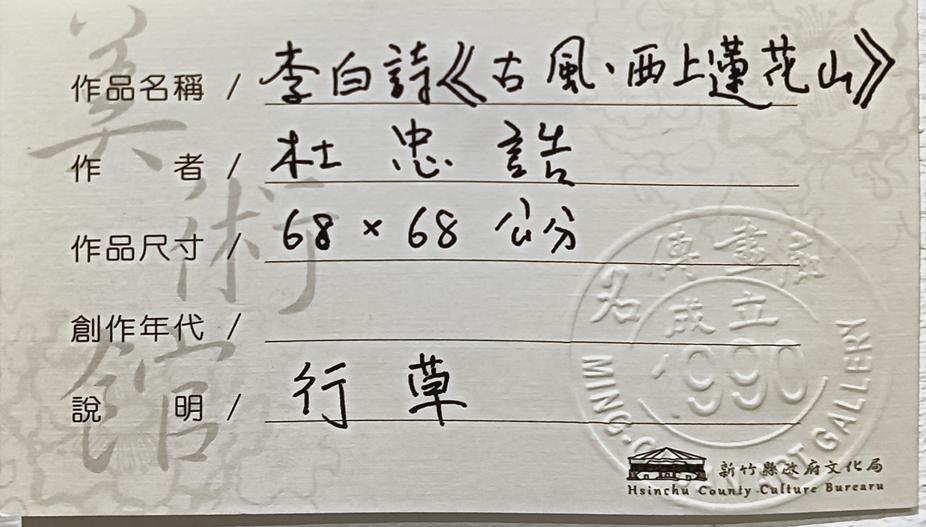 作品名稱 / 李白詩《古風·西上蓮花山》
作者 / 杜忠誥
作品尺寸 / 68 × 68 公分
創作年代 /
說明 / 行草
美術館
名傳畫廊
成立
1990
MING-
ART GALLERY
新竹縣政府文化局
Hsinchu County Culture Burearu